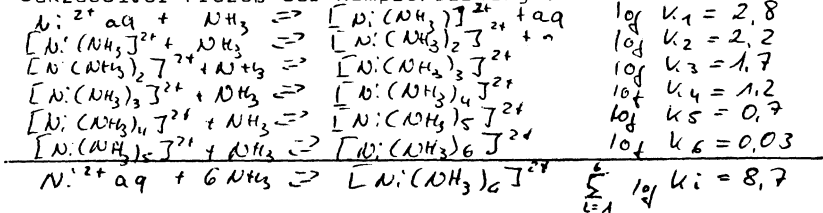 Ni²⁺ aq + NH₃ ⇌ [Ni(NH₃)]²⁺ + aq log K₁ = 2,8
[Ni(NH₃]²⁺ + NH₃ ⇌ [Ni(NH₃)₂]²⁺ + " log K₂ = 2,2
[Ni(NH₃)₂]²⁺ + NH₃ ⇌ [Ni(NH₃)₃]²⁺ log K₃ = 1,7
[Ni(NH₃)₃]²⁺ + NH₃ ⇌ [Ni(NH₃)₄]²⁺ log K₄ = 1,2
[Ni(NH₃)₄]²⁺ + NH₃ ⇌ [Ni(NH₃)₅]²⁺ log K₅ = 0,7
[Ni(NH₃)₅]²⁺ + NH₃ ⇌ [Ni(NH₃)₆]²⁺ log K₆ = 0,03
Ni²⁺ aq + 6 NH₃ ⇌ [Ni(NH₃)₆]²⁺ Σ(i=1 to 6) log Ki = 8,7